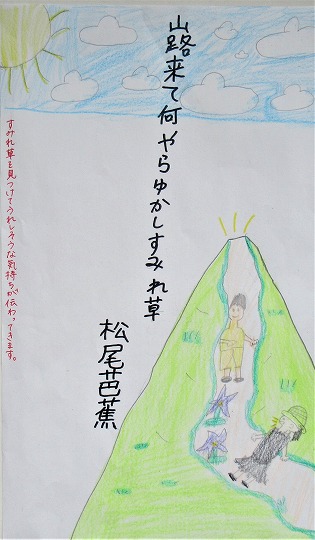 山路来て何やらゆかしすみれ草
松尾芭蕉
すみれ草を見つけてうれしそうな気持ちが伝わってきます。